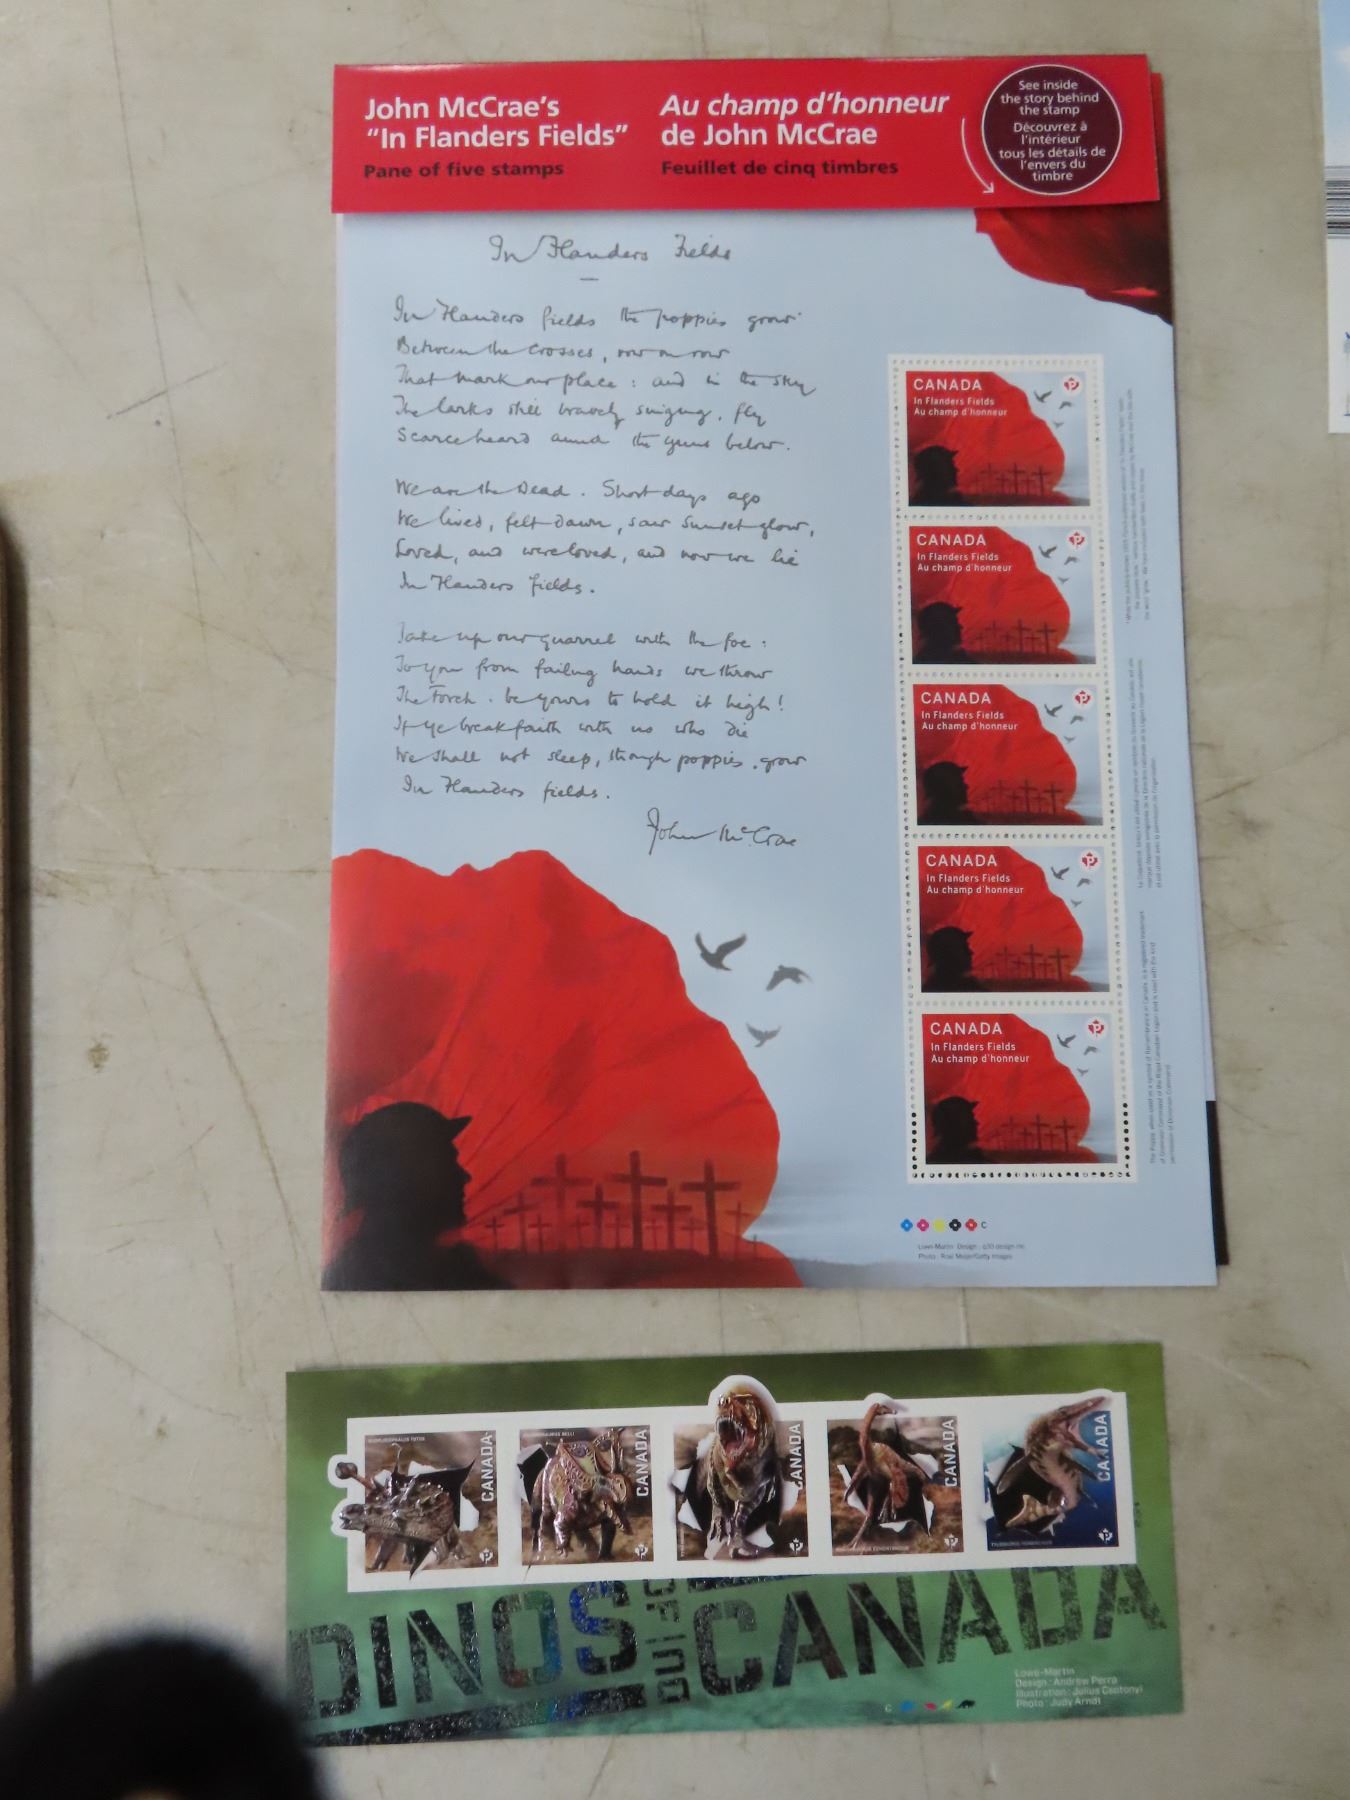 John McCrae's
"In Flanders Fields"
Pane of five stamps
Au champ d'honneur
de John McCrae
Feuillet de cinq timbres
See inside
the story behind
the stamp
Découvrez à
l'intérieur
tous les détails de
l'envers du
timbre
In Flanders Fields
In Flanders fields the poppies grow
Between the crosses, row on row
That mark our place: and in the sky
The larks still bravely singing, fly
Scarce heard amid the guns below.
We are the Dead. Short days ago
We lived, felt dawn, saw sunset glow,
Loved, and were loved, and now we lie
In Flanders fields.
Take up our quarrel with the foe:
To you from failing hands we throw
The Torch. be yours to hold it high!
If ye break faith with us who die
We shall not sleep, though poppies grow
In Flanders fields.
John McCrae
CANADA
In Flanders Fields
Au champ d'honneur
P
CANADA
In Flanders Fields
Au champ d'honneur
P
CANADA
In Flanders Fields
Au champ d'honneur
P
CANADA
In Flanders Fields
Au champ d'honneur
P
CANADA
In Flanders Fields
Au champ d'honneur
P
C
Lowe-Martin Design :
Photo :
CANADA
P
CANADA
P
CANADA
P
CANADA
P
CANADA
P
DINOS
OF
DU
CANADA
Lowe-Martin
Design : Andrew Perro
Illustration : Julius Csotonyi
Photo : Judy Arndt
C